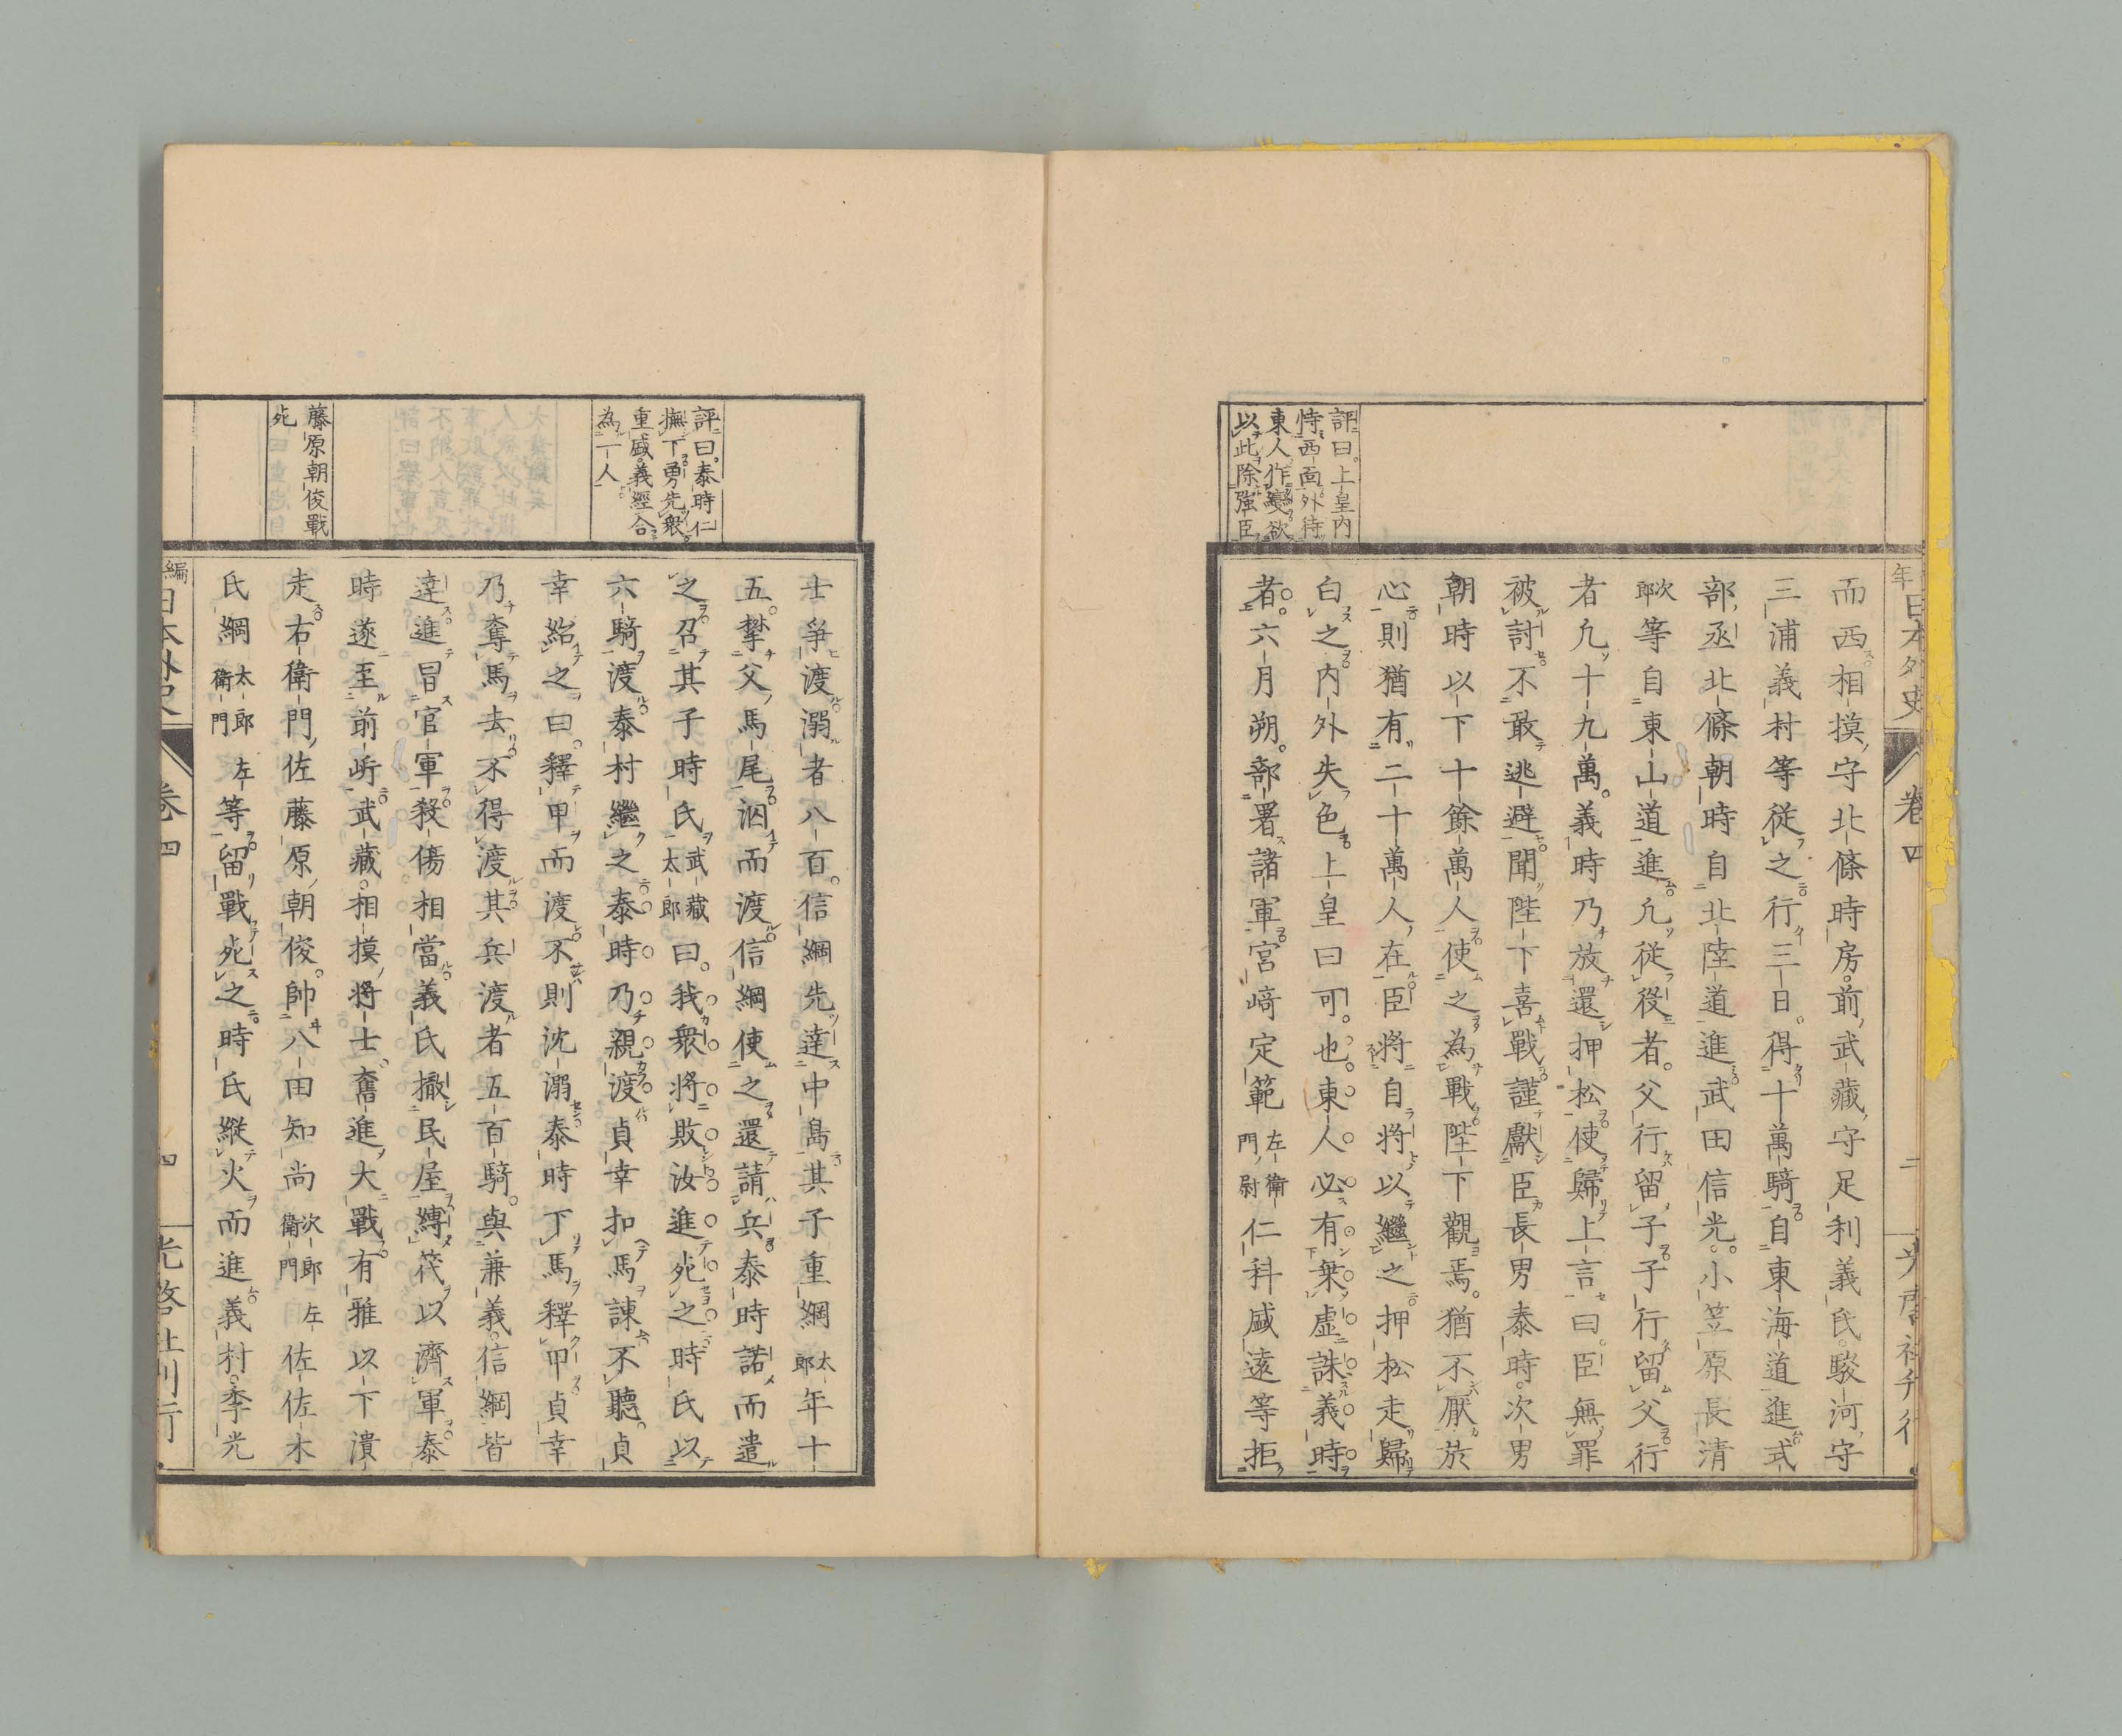 年日本外史 卷四 二 光啓社刊行
評曰。上皇内
恃西面外待
東人作變欲
以此除強臣
而西相摸守北條時房。前武藏守足利義氏。駿河守
三浦義村等從之行三日。得十萬騎自東海道進式
部丞北條朝時自北陸道進武田信光。小笠原長清
次郎等自東山道進凢從役者。父行留子子行留父行
者凢十九萬。義時乃放還押松使歸上言曰。臣無罪
被討不敢逃避聞陛下喜戰謹獻臣長男泰時。次男
朝時以下十餘萬人使之為戰陛下觀焉。猶不厭於
心則猶有二十萬人在臣將自將以繼之押松走歸
白之内外失色上皇曰可也。東人必有椉虚誅義時
者。六月朔。部署諸軍宮﨑定範左衛門尉仁科盛遠等拒
評曰。泰時仁
撫下勇先衆。
重盛。義經合
為一人
藤原朝俊戰
死
士爭渡溺者八百。信綱先達中島其子重綱太郎年十
五。攀父馬尾泅而渡信綱使之還請兵泰時諾而遣
之召其子時氏武藏太郎曰。我衆將敗汝進死之時氏以
六騎渡泰村繼之泰時乃親渡貞幸扣馬諫不聽。貞
幸紿之曰。釋甲而渡不則沈溺泰時下馬釋甲貞幸
乃奪馬去不得渡其兵渡者五百騎。與兼義。信綱皆
達進冒官軍殺傷相當義氏撤民屋縛筏以濟軍泰
時遂至前岸武藏。相摸將士奮進大戰有雅以下潰
走右衛門佐藤原朝俊。帥八田知尚次郎左衛門佐佐木
氏綱太郎左衛門等留戰死之時氏縱火而進義村。季光
編 日本外史 卷四 四 光啓社刊行